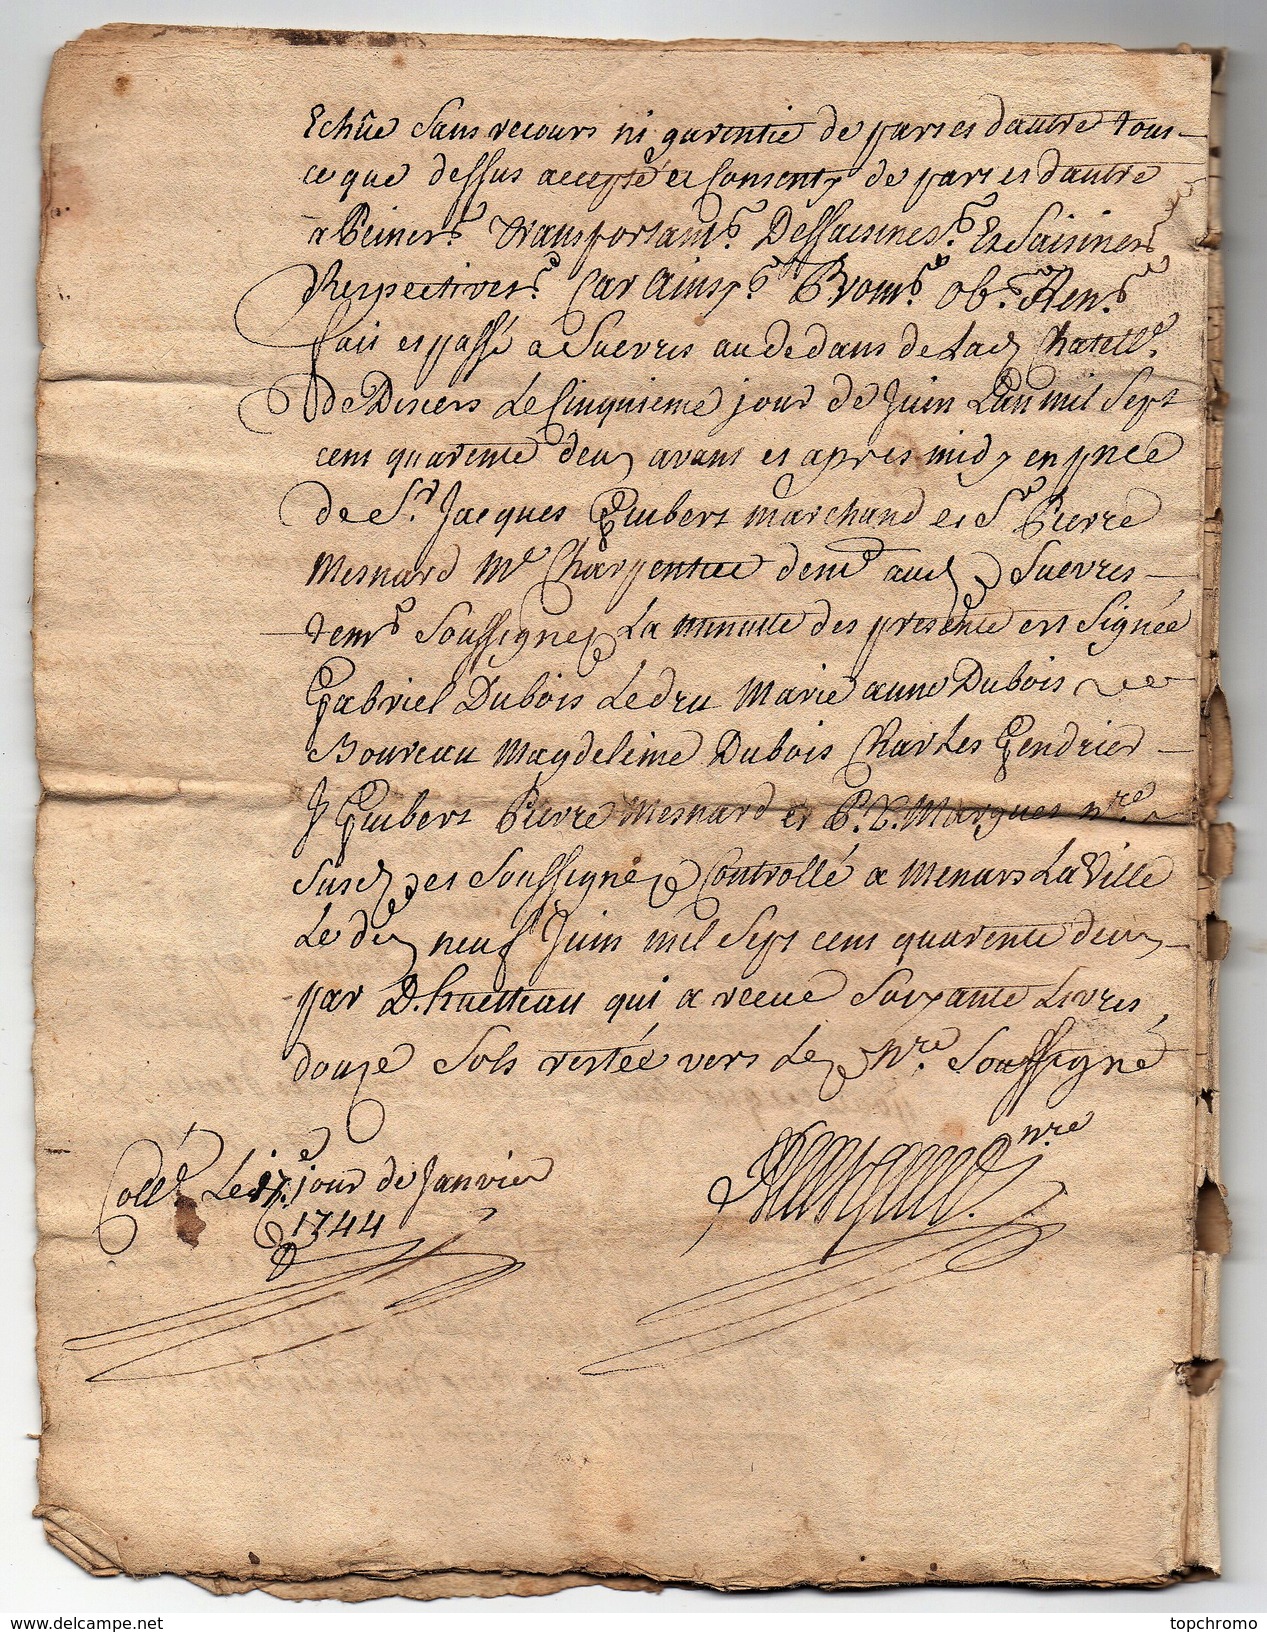 Echûe sans recours ni garentie de part et dautre tous
ce que dessus accepté et Consenty de part et dautre
a Peine rs. transportant s. Dessaisines s. Et Saisines
Respectives s. Car Ains y s. Prom s. ob s. Ren s.
fait et passé a Suevres au dedans de Lad Chatell e.
de Diziers Le Cinquieme jour de Juin Lan mil Sept
cent quarente deux avant et apres midy en pnce
de Sr. Jacques Guibert marchand et Sr Pierre
Mesnard Me Charpentier demt aud Suevres
temrs Soussignez La minutte des presente est Signée
Gabriel Dubois Ledru Marie anne Dubois ve
Boureau Magdeleine Dubois Charles Gendrier
J Guibert Pierre Mesnard et P. X. Marques nre
Susd et Soussigné Controllé a Menars La Ville
Le dix neuf Juin mil Sept cent quarente deux
par D. huetteau qui a receue Soixante Livres
douze Sols restée vers Led nre Soussigné
Colle Le 17e jour de Janvier
1744
nre
delcampe.net
topchromo